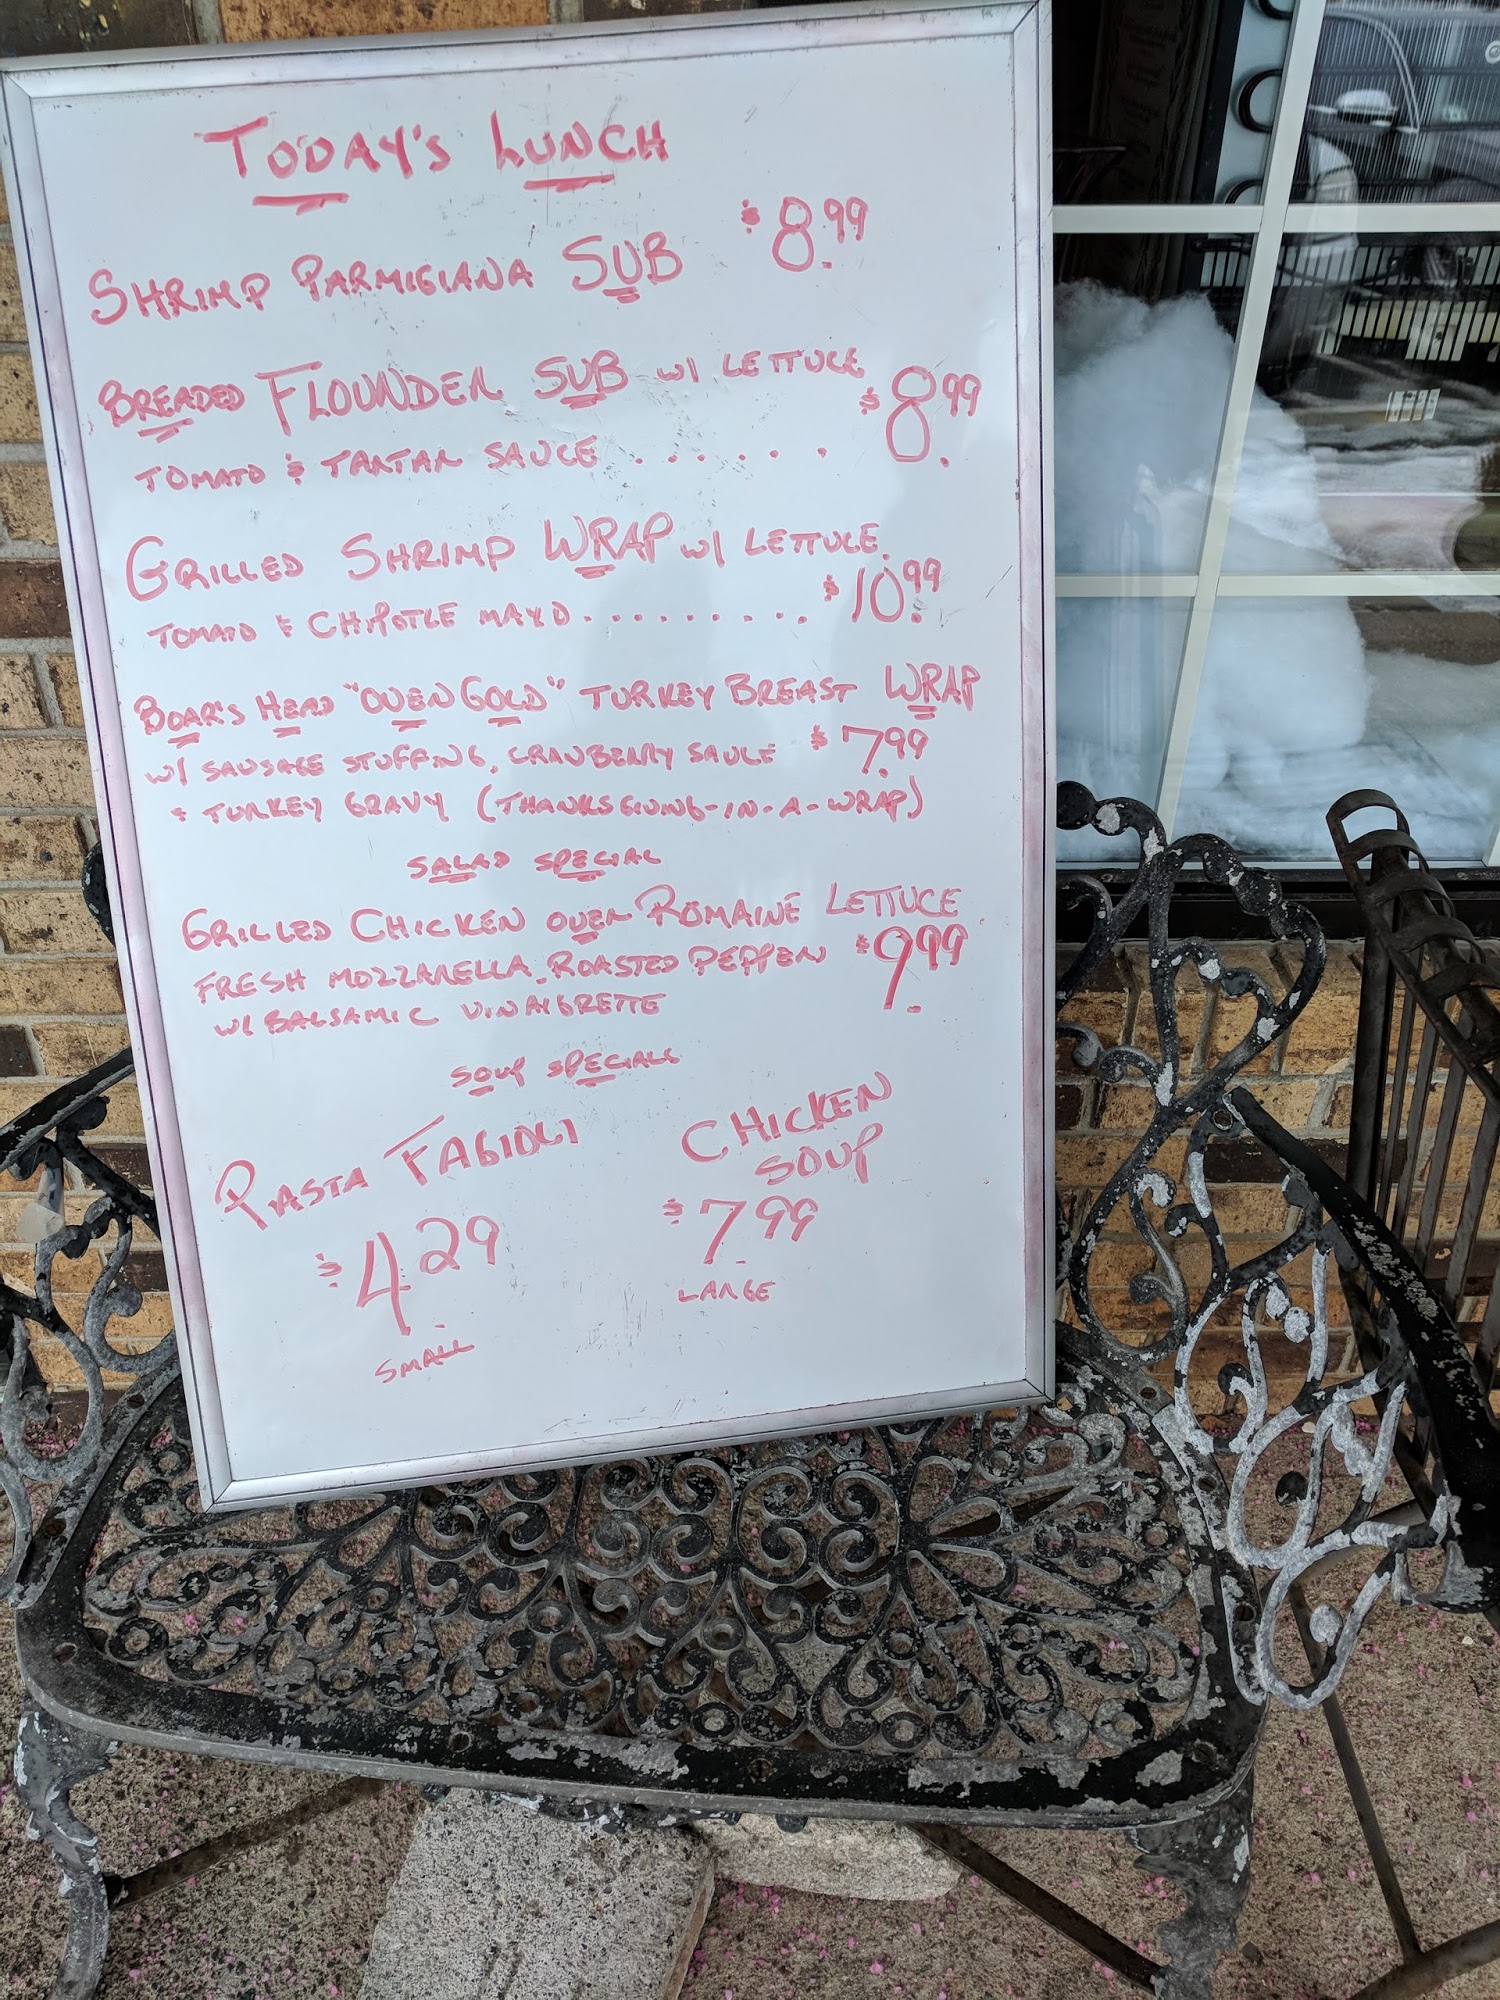 TODAY'S LUNCH
SHRIMP PARMIGIANA SUB $8.99
BREADED FLOUNDER SUB w/ LETTUCE
TOMATO & TARTAR SAUCE ...... $8.99
GRILLED SHRIMP WRAP w/ LETTUCE,
TOMATO & CHIPOTLE MAYO ......... $10.99
BOAR'S HEAD "OVEN GOLD" TURKEY BREAST WRAP
w/ SAUSAGE STUFFING, CRANBERRY SAUCE $7.99
& TURKEY GRAVY (THANKSGIVING-IN-A-WRAP)
SALAD SPECIAL
GRILLED CHICKEN OVER ROMAINE LETTUCE
FRESH MOZZARELLA, ROASTED PEPPER $9.99
w/ BALSAMIC VINAIGRETTE
SOUP SPECIALS
PASTA FAGIOLI
$4.29
SMALL
CHICKEN
SOUP
$7.99
LARGE